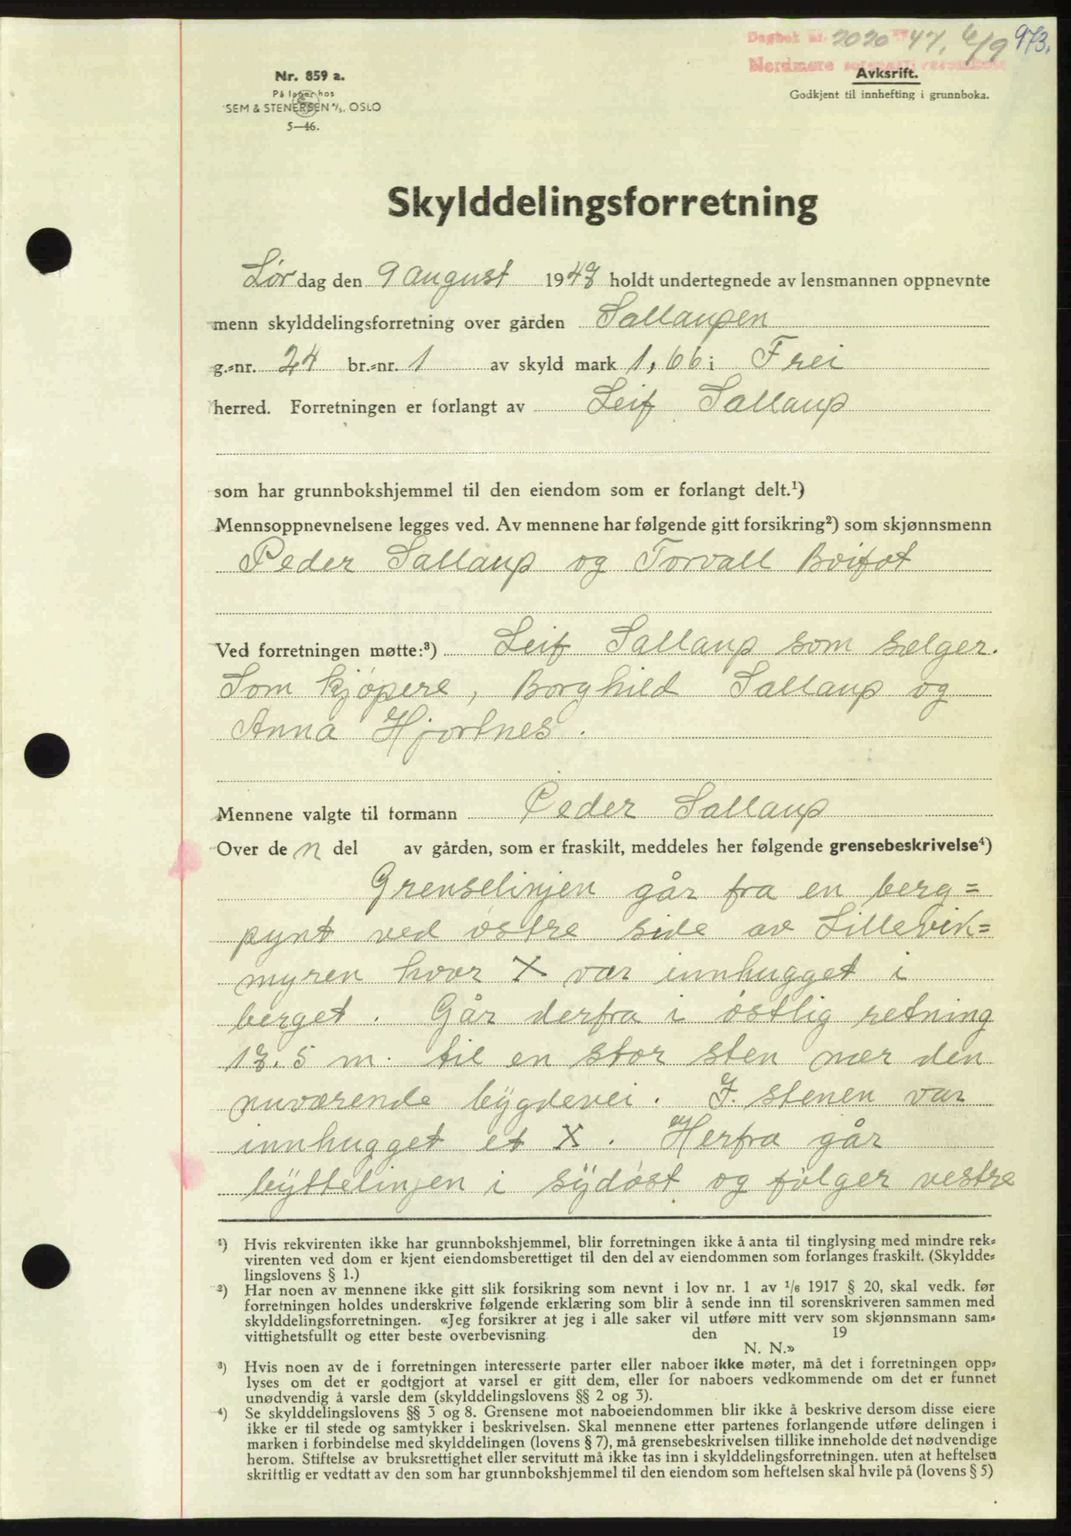 Dagbok nr. 2020 47, 6/9 973.
Nordmøre sorenskriverembete
Nr. 859 a.
På lager hos
SEM & STENERSEN A/S. OSLO
5—46.
Avkskrift.
Godkjent til innhefting i grunnboka.
Skylddelingsforretning
Lørdag den 9 august 1947 holdt undertegnede av lensmannen oppnevnte
menn skylddelingsforretning over gården Sallaupen
g.-nr. 24 br.-nr. 1 av skyld mark 1,66 i Frei
herred. Forretningen er forlangt av Leif Sallaup
som har grunnbokshjemmel til den eiendom som er forlangt delt.¹)
Mennsoppnevnelsene legges ved. Av mennene har følgende gitt forsikring²) som skjønnsmenn
Peder Sallaup og Torvall Boifot
Ved forretningen møtte:³) Leif Sallaup som selger.
Som kjøpere, Borghild Sallaup og
Anna Hjortnes.
Mennene valgte til formann Peder Sallaup
Over den del av gården, som er fraskilt, meddeles her følgende grensebeskrivelse⁴)
Grenselinjen går fra en berg=
pynt ved østre side av Lillevik=
myren hvor X var innhugget i
berget. Går derfra i østlig retning
17.5 m. til en stor sten nær den
nuværende bygdevei. I. stenen var
innhugget et X. Herfra går
byttelinjen i sydøst og følger vestre
¹) Hvis rekvirenten ikke har grunnbokshjemmel, blir forretningen ikke å anta til tinglysing med mindre rek-
virenten ved dom er kjent eiendomsberettiget til den del av eiendommen som forlanges fraskilt. (Skyldde-
lingslovens § 1.)
²) Har noen av mennene ikke gitt slik forsikring som nevnt i lov nr. 1 av 1/6 1917 § 20, skal vedk. før
forretningen holdes underskrive følgende erklæring som blir å sende inn til sorenskriveren sammen med
skylddelingsforretningen. «Jeg forsikrer at jeg i alle saker vil utføre mitt verv som skjønnsmann sam-
vittighetsfullt og etter beste overbevisning den 19
N. N.»
³) Hvis noen av de i forretningen interesserte parter eller naboer ikke møter, må det i forretningen opp-
lyses om det er godtgjort at varsel er gitt dem, eller for naboers vedkommende om det er funnet
unødvendig å varsle dem (skylddelingslovens §§ 2 og 3).
⁴) Se skylddelingslovens §§ 3 og 8. Grensene mot naboeiendommen blir ikke å beskrive dersom disse eiere
ikke er til stede og samtykker i beskrivelsen. Skal mennene etter partenes forlangende utføre delingen i
marken i forbindelse med skylddelingen (lovens § 7), må grensebeskrivelsen tillike inneholde det nødvendige
herom. Stiftelse av bruksrettighet eller servitutt må ikke tas inn i skylddelingsforretningen. uten at heftelsen
skriftlig er vedtatt av den som har grunnbokshjemmel til den eiendom som heftelsen skal hvile på (lovens § 5)